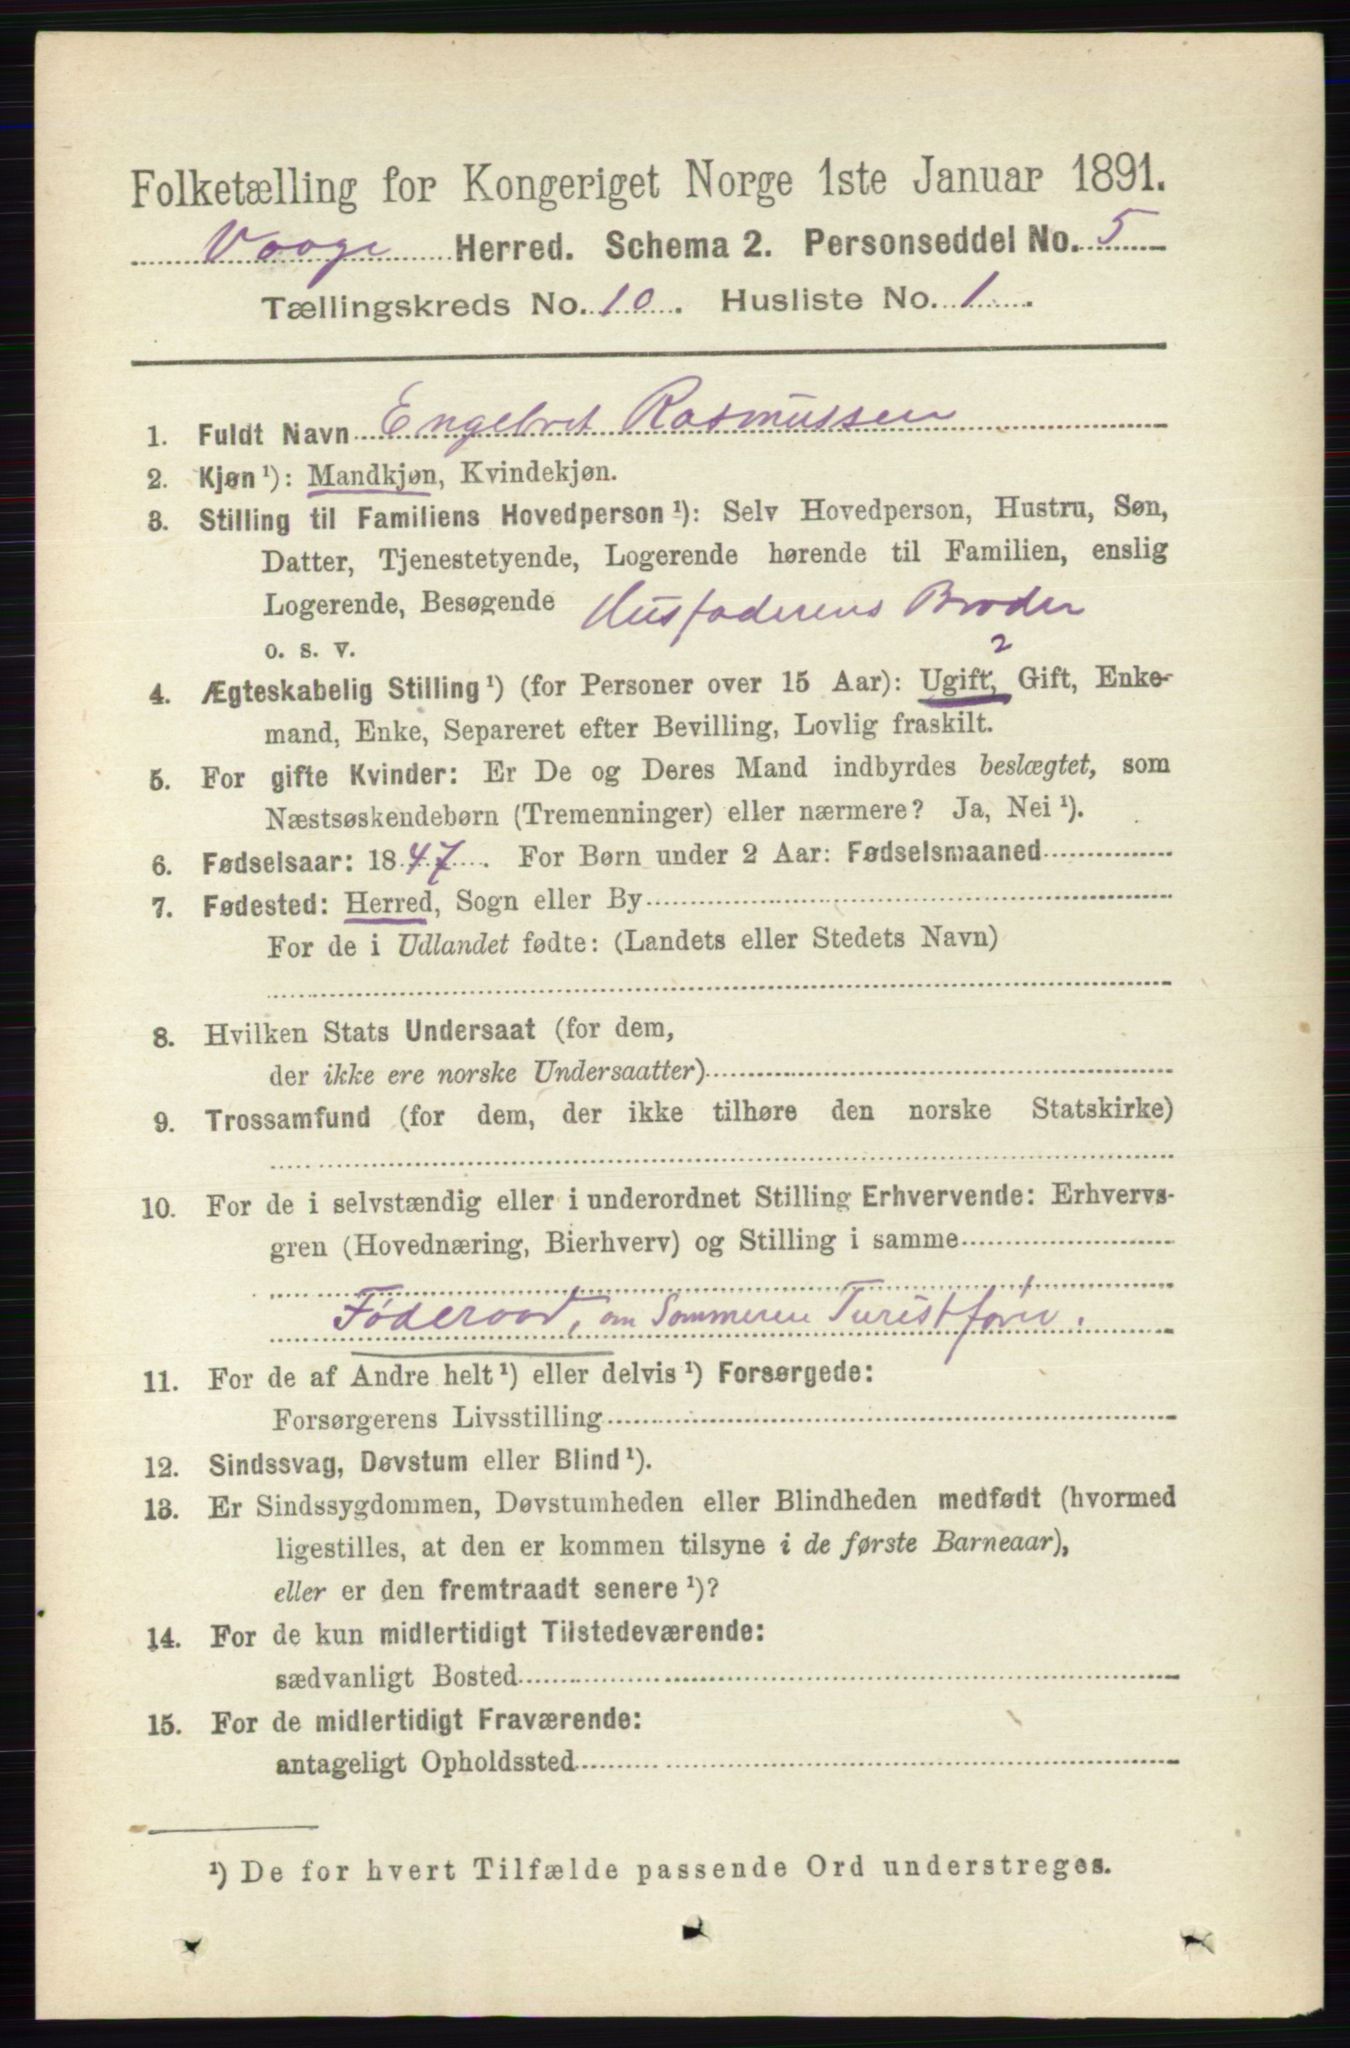 Folketælling for Kongeriget Norge 1ste Januar 1891.
Vaage Herred. Schema 2. Personseddel No. 5
Tællingskreds No. 10. Husliste No. 1.
1. Fuldt Navn Engebret Rasmussen
2. Kjøn ¹): Mandkjøn, Kvindekjøn.
3. Stilling til Familiens Hovedperson ¹): Selv Hovedperson, Hustru, Søn,
Datter, Tjenestetyende, Logerende hørende til Familien, enslig
Logerende, Besøgende Husfaderens Broder
o. s. v.
2
4. Ægteskabelig Stilling ¹) (for Personer over 15 Aar): Ugift, Gift, Enke-
mand, Enke, Separeret efter Bevilling, Lovlig fraskilt.
5. For gifte Kvinder: Er De og Deres Mand indbyrdes beslægtet, som
Næstsøskendebørn (Tremenninger) eller nærmere? Ja, Nei ¹).
6. Fødselsaar: 1847. For Børn under 2 Aar: Fødselsmaaned
7. Fødested: Herred, Sogn eller By
For de i Udlandet fødte: (Landets eller Stedets Navn)
8. Hvilken Stats Undersaat (for dem,
der ikke ere norske Undersaatter)
9. Trossamfund (for dem, der ikke tilhøre den norske Statskirke)
10. For de i selvstændig eller i underordnet Stilling Erhvervende: Erhvervs-
gren (Hovednæring, Bierhverv) og Stilling i samme
Føderaad, om Sommeren Turistfører.
11. For de af Andre helt ¹) eller delvis ¹) Forsørgede:
Forsørgerens Livsstilling
12. Sindssvag, Døvstum eller Blind ¹).
13. Er Sindssygdommen, Døvstumheden eller Blindheden medfødt (hvormed
ligestilles, at den er kommen tilsyne i de første Barneaar),
eller er den fremtraadt senere ¹)?
14. For de kun midlertidigt Tilstedeværende:
sædvanligt Bosted
15. For de midlertidigt Fraværende:
antageligt Opholdssted
¹) De for hvert Tilfælde passende Ord understreges.